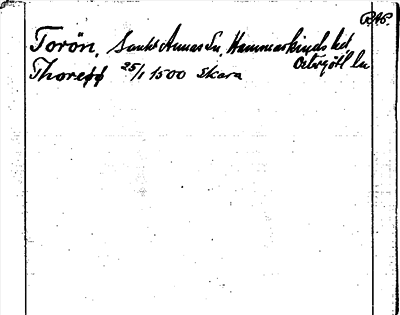 RAP.
Torön, Sankt Annas sn, Hammarkinds hd
Östergötl ln
Thoreøø 25/1 1500 Skara